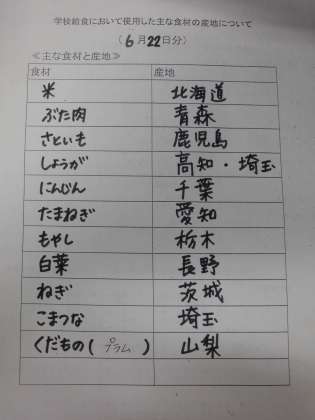 学校給食において使用した主な食材の産地について
(6月22日分)
≪主な食材と産地≫
食材 産地
米 北海道
ぶた肉 青森
さといも 鹿児島
しょうが 高知・埼玉
にんじん 千葉
たまねぎ 愛知
もやし 栃木
白菜 長野
ねぎ 茨城
こまつな 埼玉
くだもの(プラム) 山梨